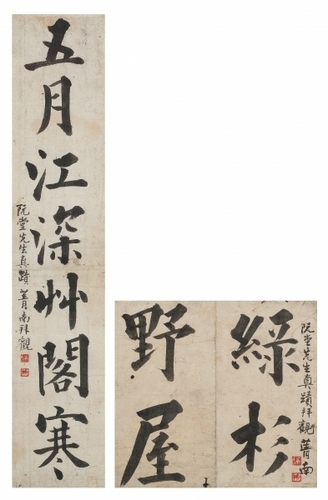 五月江深艸閣寒
阮堂先生真蹟 菁南拜觀
阮堂先生真蹟拜觀 菁南
綠杉
野屋